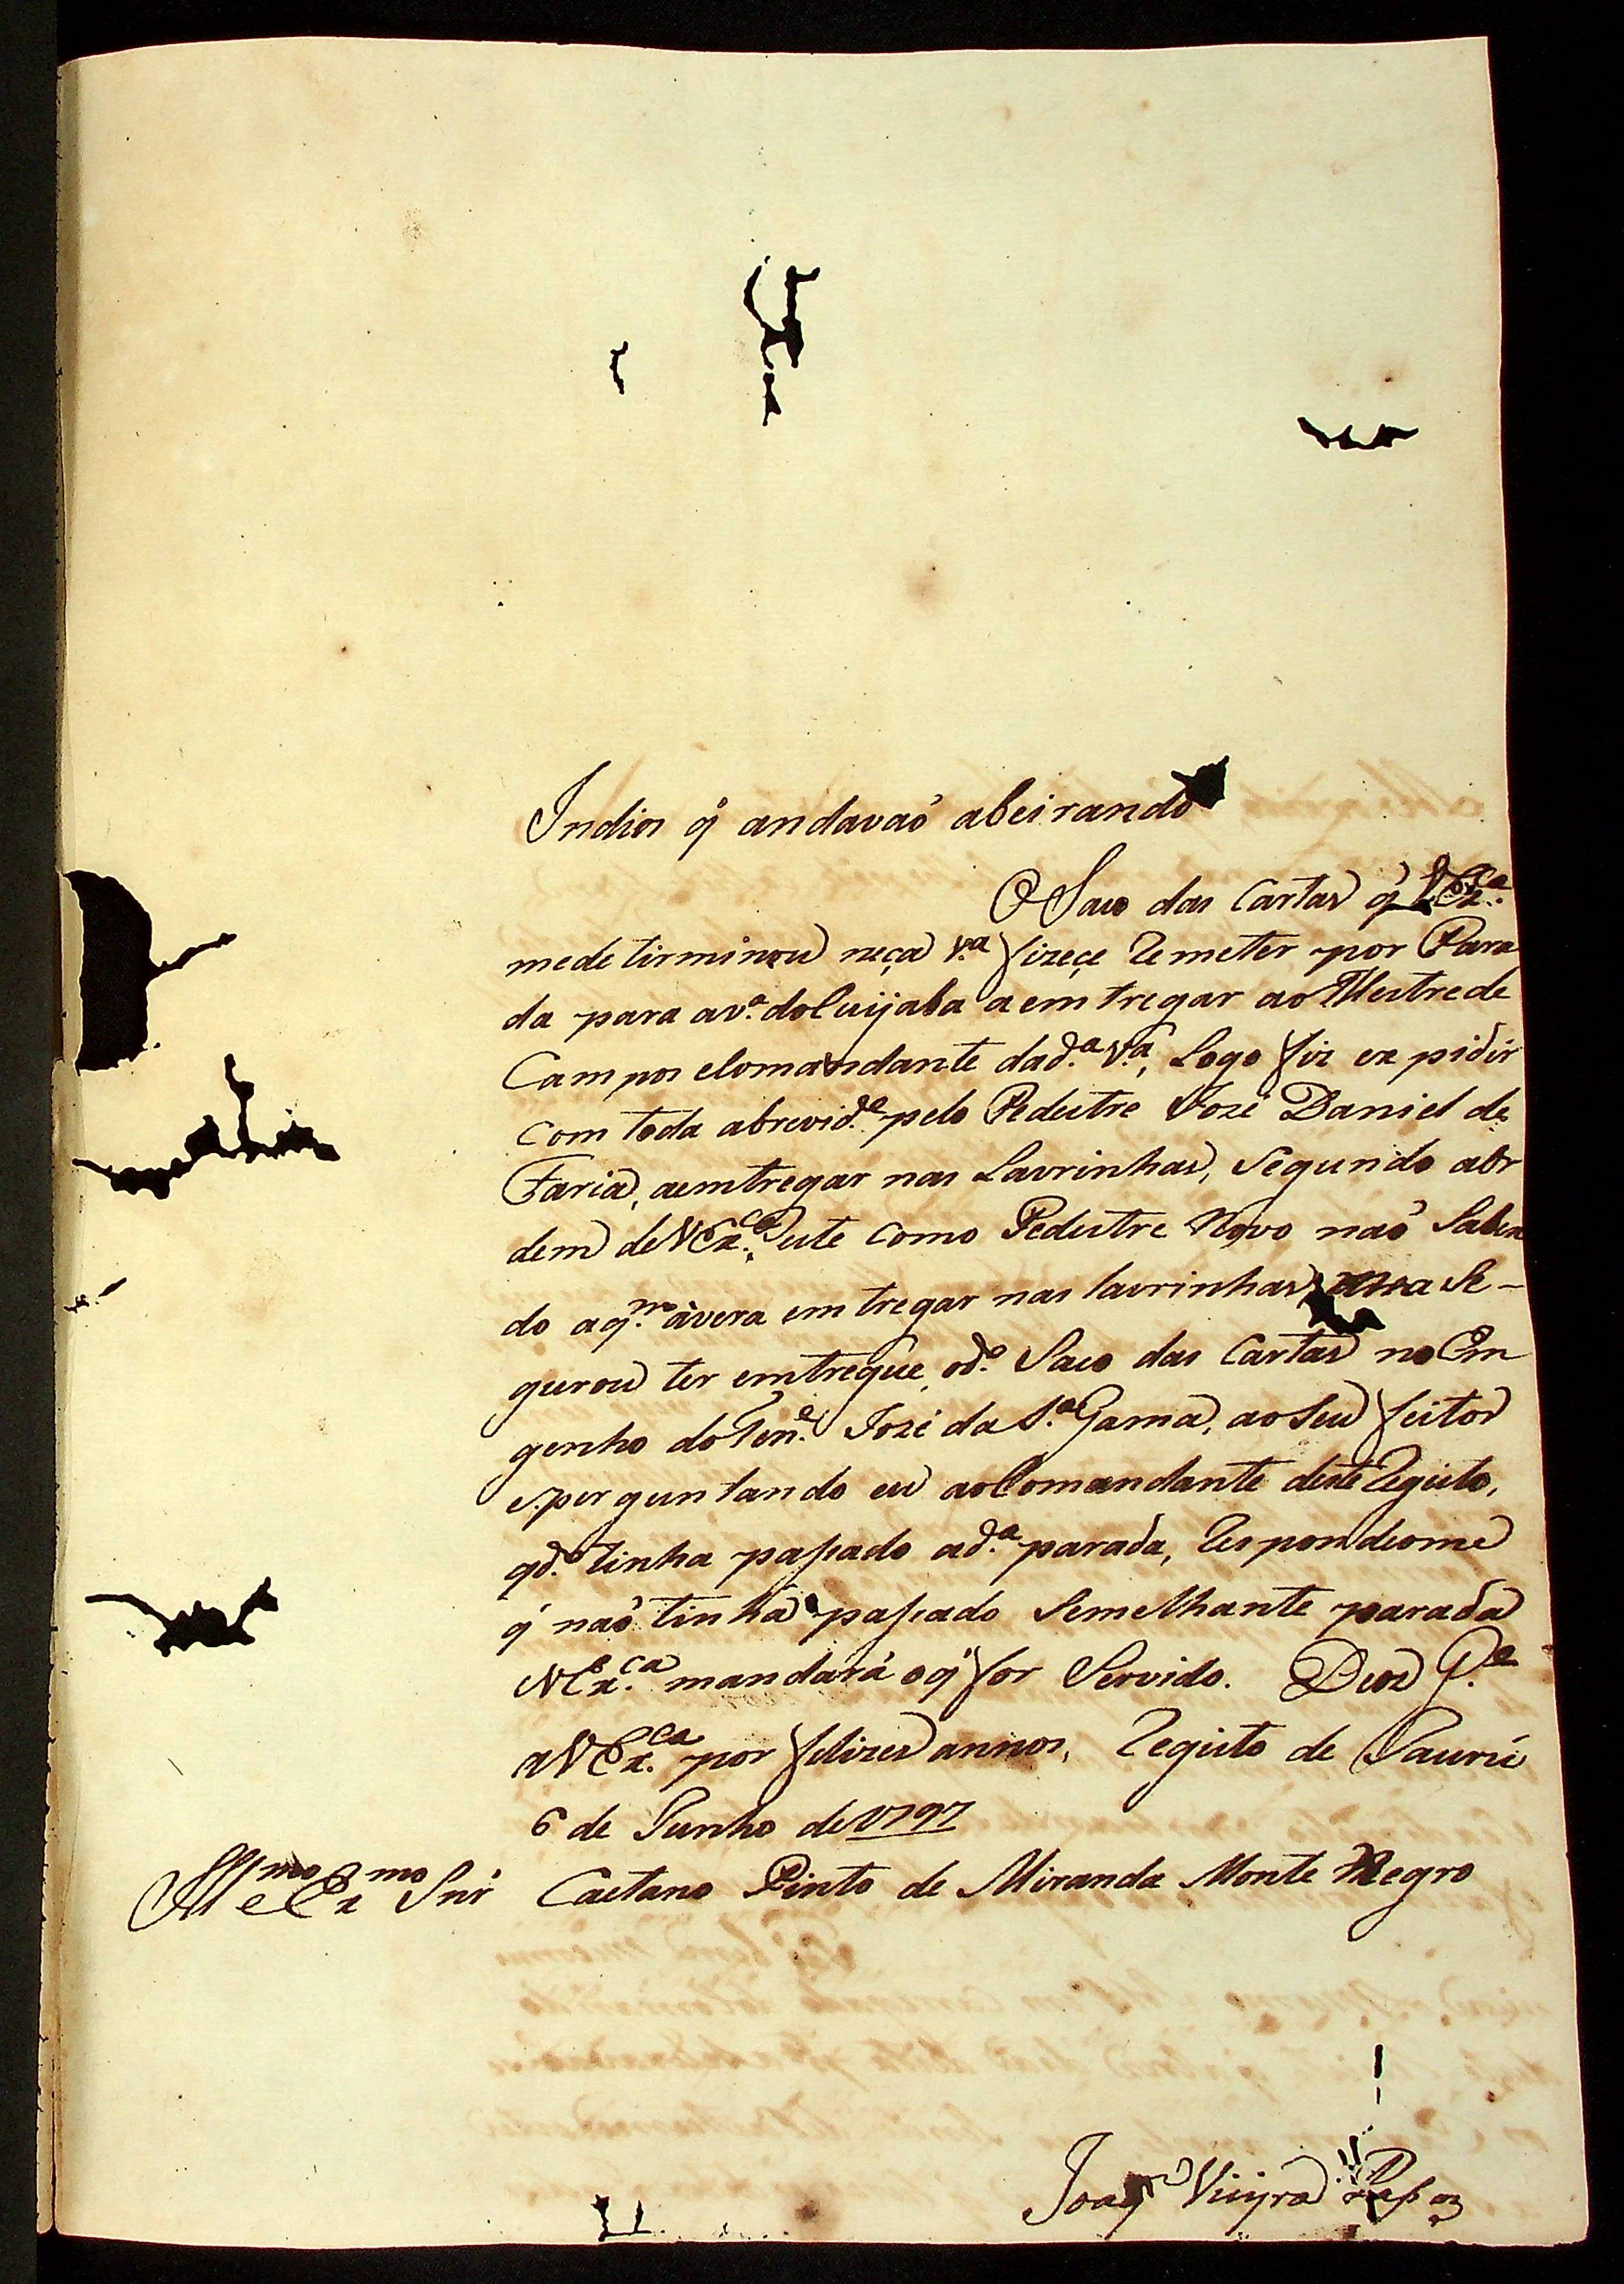 Indios q̃ andavaõ abeirando
O Saco das Cartas q̃ VEx.ª
mede tirminou neça v.ª fizeçe Remeter por Para
da para av.ª doCuijaba a em tregar ao Mestrede
Campos eComandante dad.ª v.ª, Logo fiz ex pidir
com toda abrevid.e pelo Pedestre Jozé Daniel de
Faria, aemtregar nas Lavrinhas, Segundo aor
dem deVEx.ca este como Pedestre Novo naõ Saben
do aq.m àvera em tregar nas lavrinhas, Se-
gurou ter emtregue, od.o Saco das Cartas no En
genho doTen.e Jozé da S.ª Gama, aoSeu feitor
e.per guntando eu aoComandante desteRegisto,
qd.o tinha paſsado ad.ª parada, Respondeome
q̃ naõ tinha paſsado Semelhante parada
VEx.ca mandará oq̃ for Servido. Deos G.e
aVEx.ca por felizes annos, Registo de Jaurú
6 de Junho de1797
Ill.mo eEx.mo Snr̃ Caetano Pinto de Miranda Monte Negro
Joaq.m Vieyra Paſsos